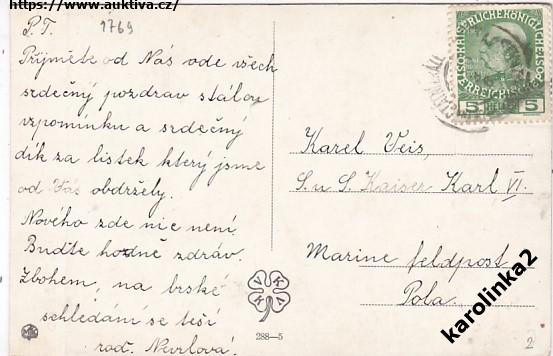 https://www.auktiva.cz/
P. T.
1769
Přijměte od Nás vde všech
srdečný pozdrav stálou
vzpomínku a srdečný
dík za lístek který jsme
od Vás obdržely.
Nového zde nic není
Buďte hodně zdráv.
Zbohem, na brské
schledání se těší
rod. Nevrlová.
5 5
Karel Veis,
S. u S. Kaiser Karl VI.
Marine feldpost
Pola.
K V K V
288—5
karolinka2
2